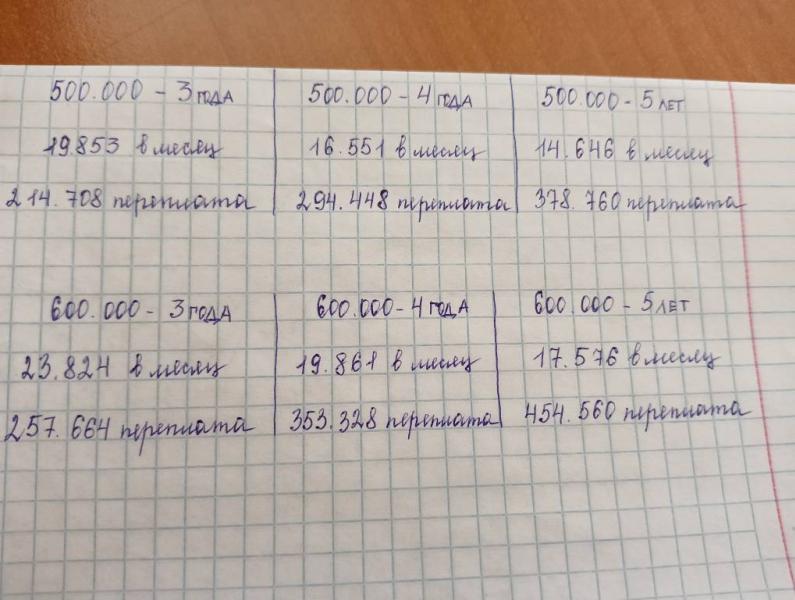 500.000 - 3 ГОДА
19.853 в месяц
214.708 переплата
500.000 - 4 ГОДА
16.551 в месяц
294.448 переплата
500.000 - 5 ЛЕТ
14.646 в месяц
378.760 переплата
600.000 - 3 ГОДА
23.824 в месяц
257.664 переплата
600.000 - 4 ГОДА
19.861 в месяц
353.328 переплата
600.000 - 5 ЛЕТ
17.576 в месяц
454.560 переплата